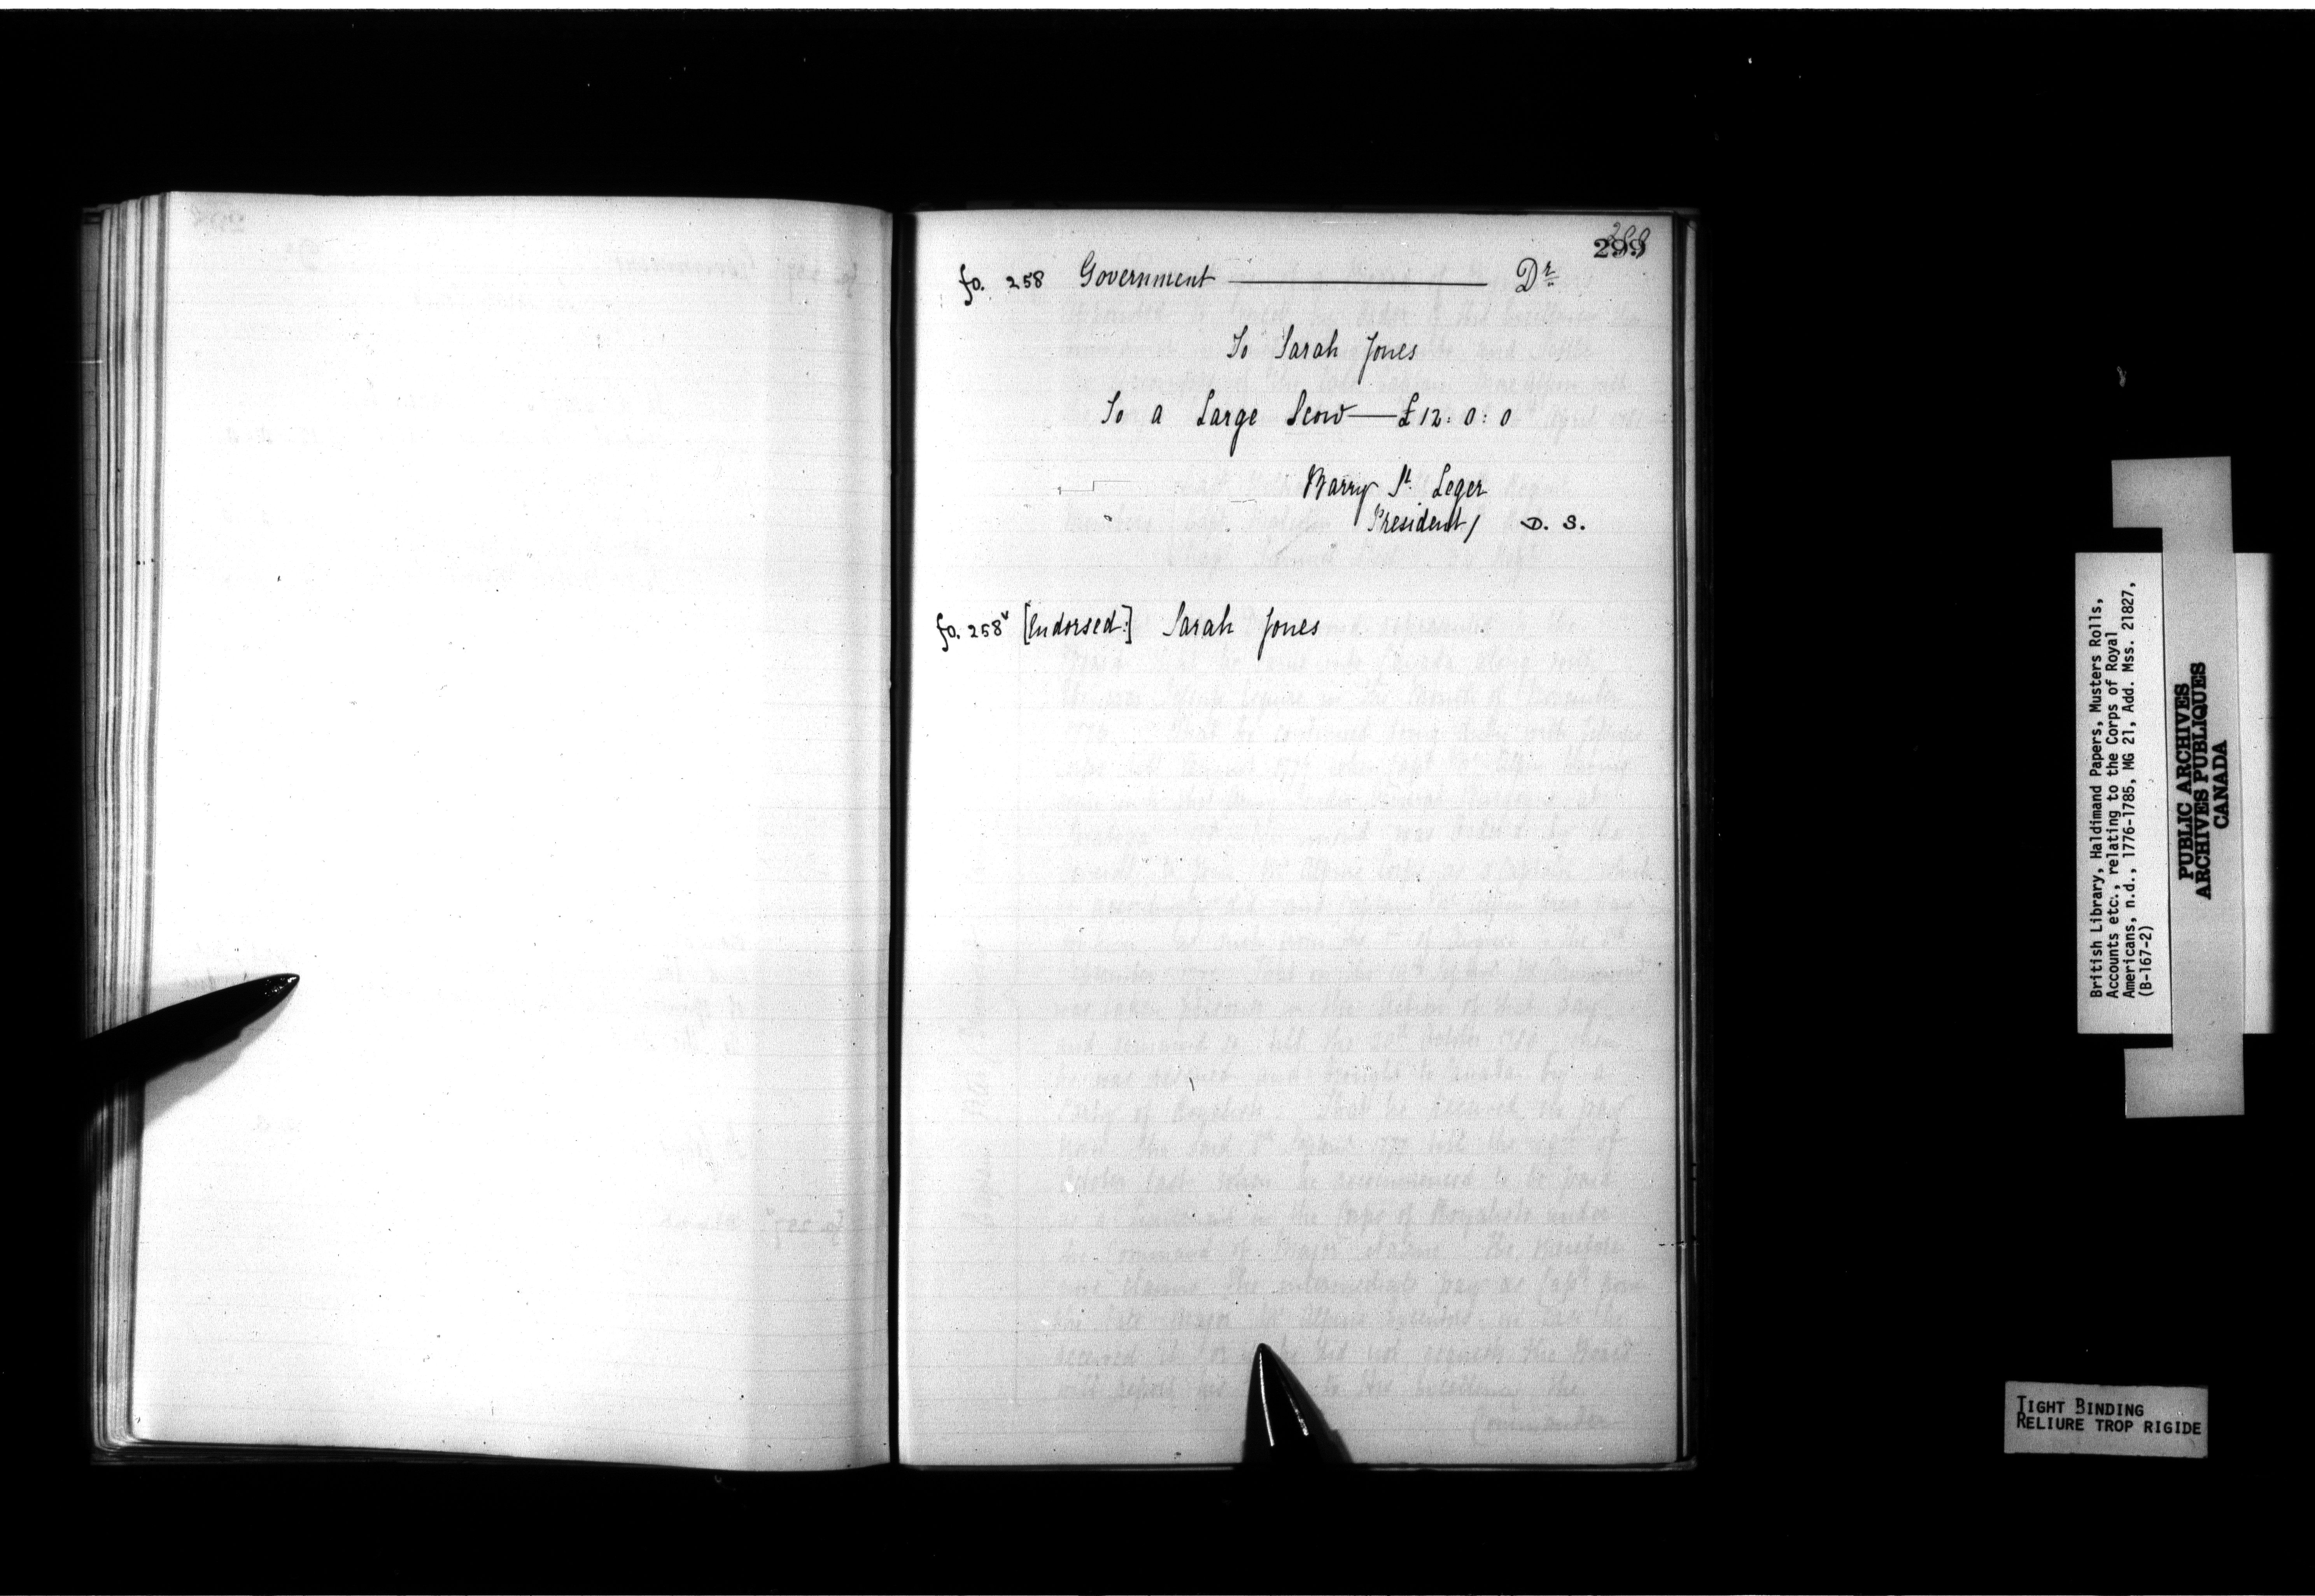 299
fo. 258 Government —————— Dr.
To Sarah Jones
To a Large Scow — £12: 0: 0
Barry St. Leger
President / D. S.
fo. 258v [Endorsed:] Sarah Jones
British Library, Haldimand Papers, Musters Rolls,
Accounts etc., relating to the Corps of Royal
Americans, n.d., 1776-1785, MG 21, Add. Mss. 21827,
(B-167-2)
PUBLIC ARCHIVES
ARCHIVES PUBLIQUES
CANADA
TIGHT BINDING
RELIURE TROP RIGIDE